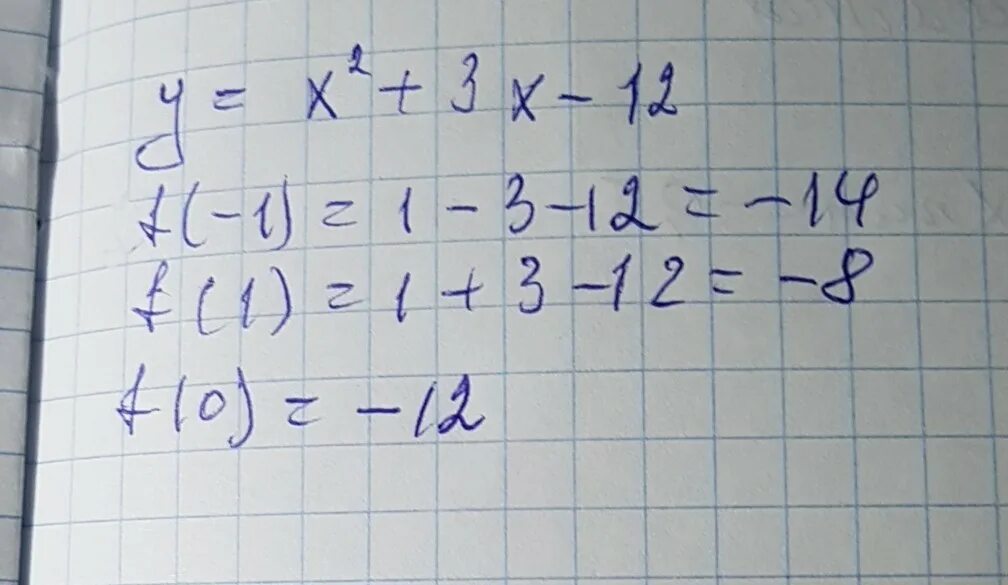 y = x² + 3x - 12
f(-1) = 1 - 3 - 12 = -14
f(1) = 1 + 3 - 12 = -8
f(0) = -12